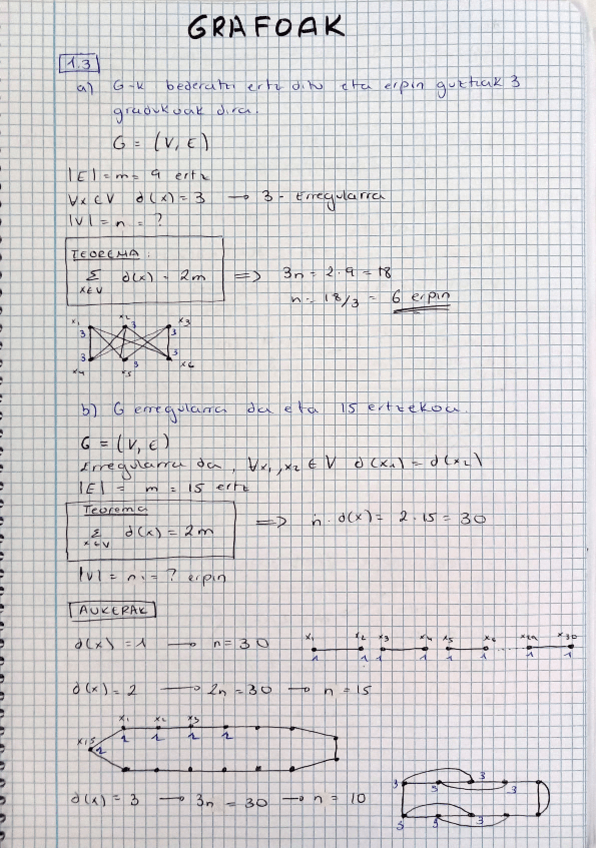 GRAFOAK
1.3
a) G-k bederatzi ertz ditu eta erpin guztiak 3
gradukoak dira.
G = (V, E)
|E| = m = 9 ertz
∀x ∈ V ∂(x) = 3 → 3 - Erregularra
|V| = n = ?
TEOREMA:
Σ ∂(x) = 2m ⇒ 3n = 2·9 = 18
x∈V
n = 18/3 = 6 erpin
x1 x2 x3
3 3 3
3 3 3
x4 x5 x6
b) G erregularra da eta 15 ertzekoa.
G = (V, E)
Erregularra da, ∀x1, x2 ∈ V ∂(x1) = ∂(x2)
|E| = m = 15 ertz
Teorema
Σ ∂(x) = 2m ⇒ n·∂(x) = 2·15 = 30
x∈V
|V| = n = ? erpin
AUKERAK
∂(x) = 1 → n = 30 x1 x2 x3 x4 x5 x6 x29 x30
1 1 1 1 1 1 1 1
∂(x) = 2 → 2n = 30 → n = 15
x1 x2 x3
x15 2 2 2 2 2
∂(x) = 3 → 3n = 30 → n = 10
3 3 3 3
3 3 3